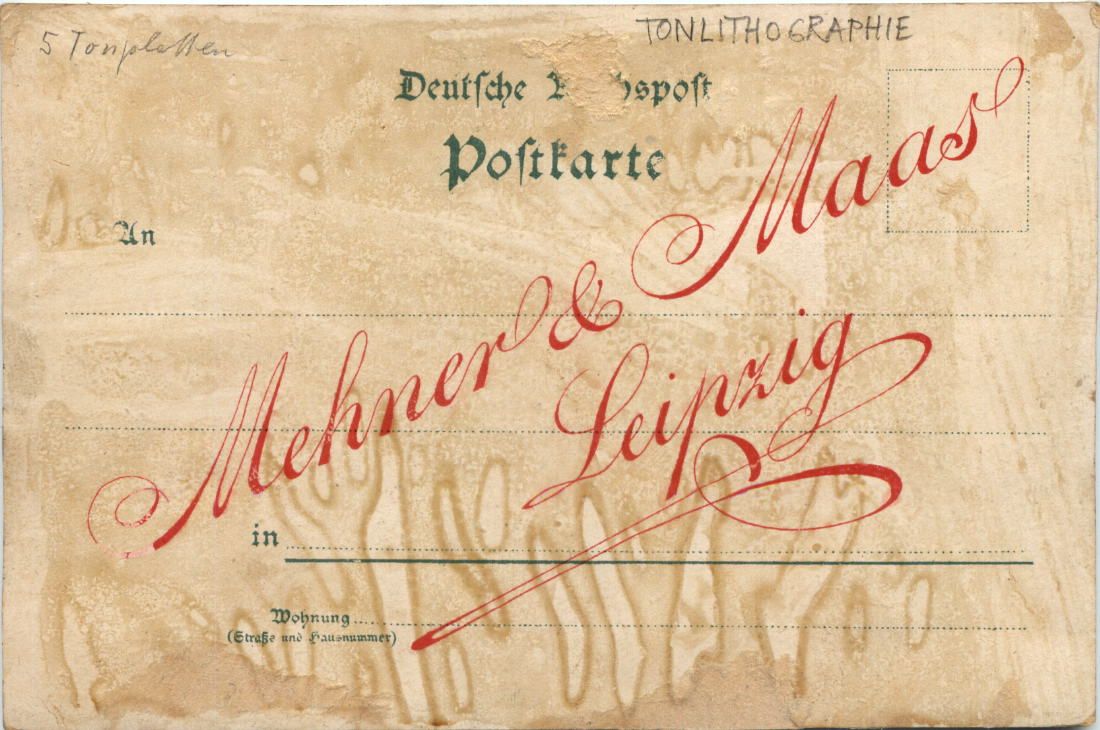 5 Tonplatten
TONLITHOGRAPHIE
Deutsche
Postkarte
An
Mehner & Maas
Leipzig
in
Wohnung
(Straße und Hausnummer)